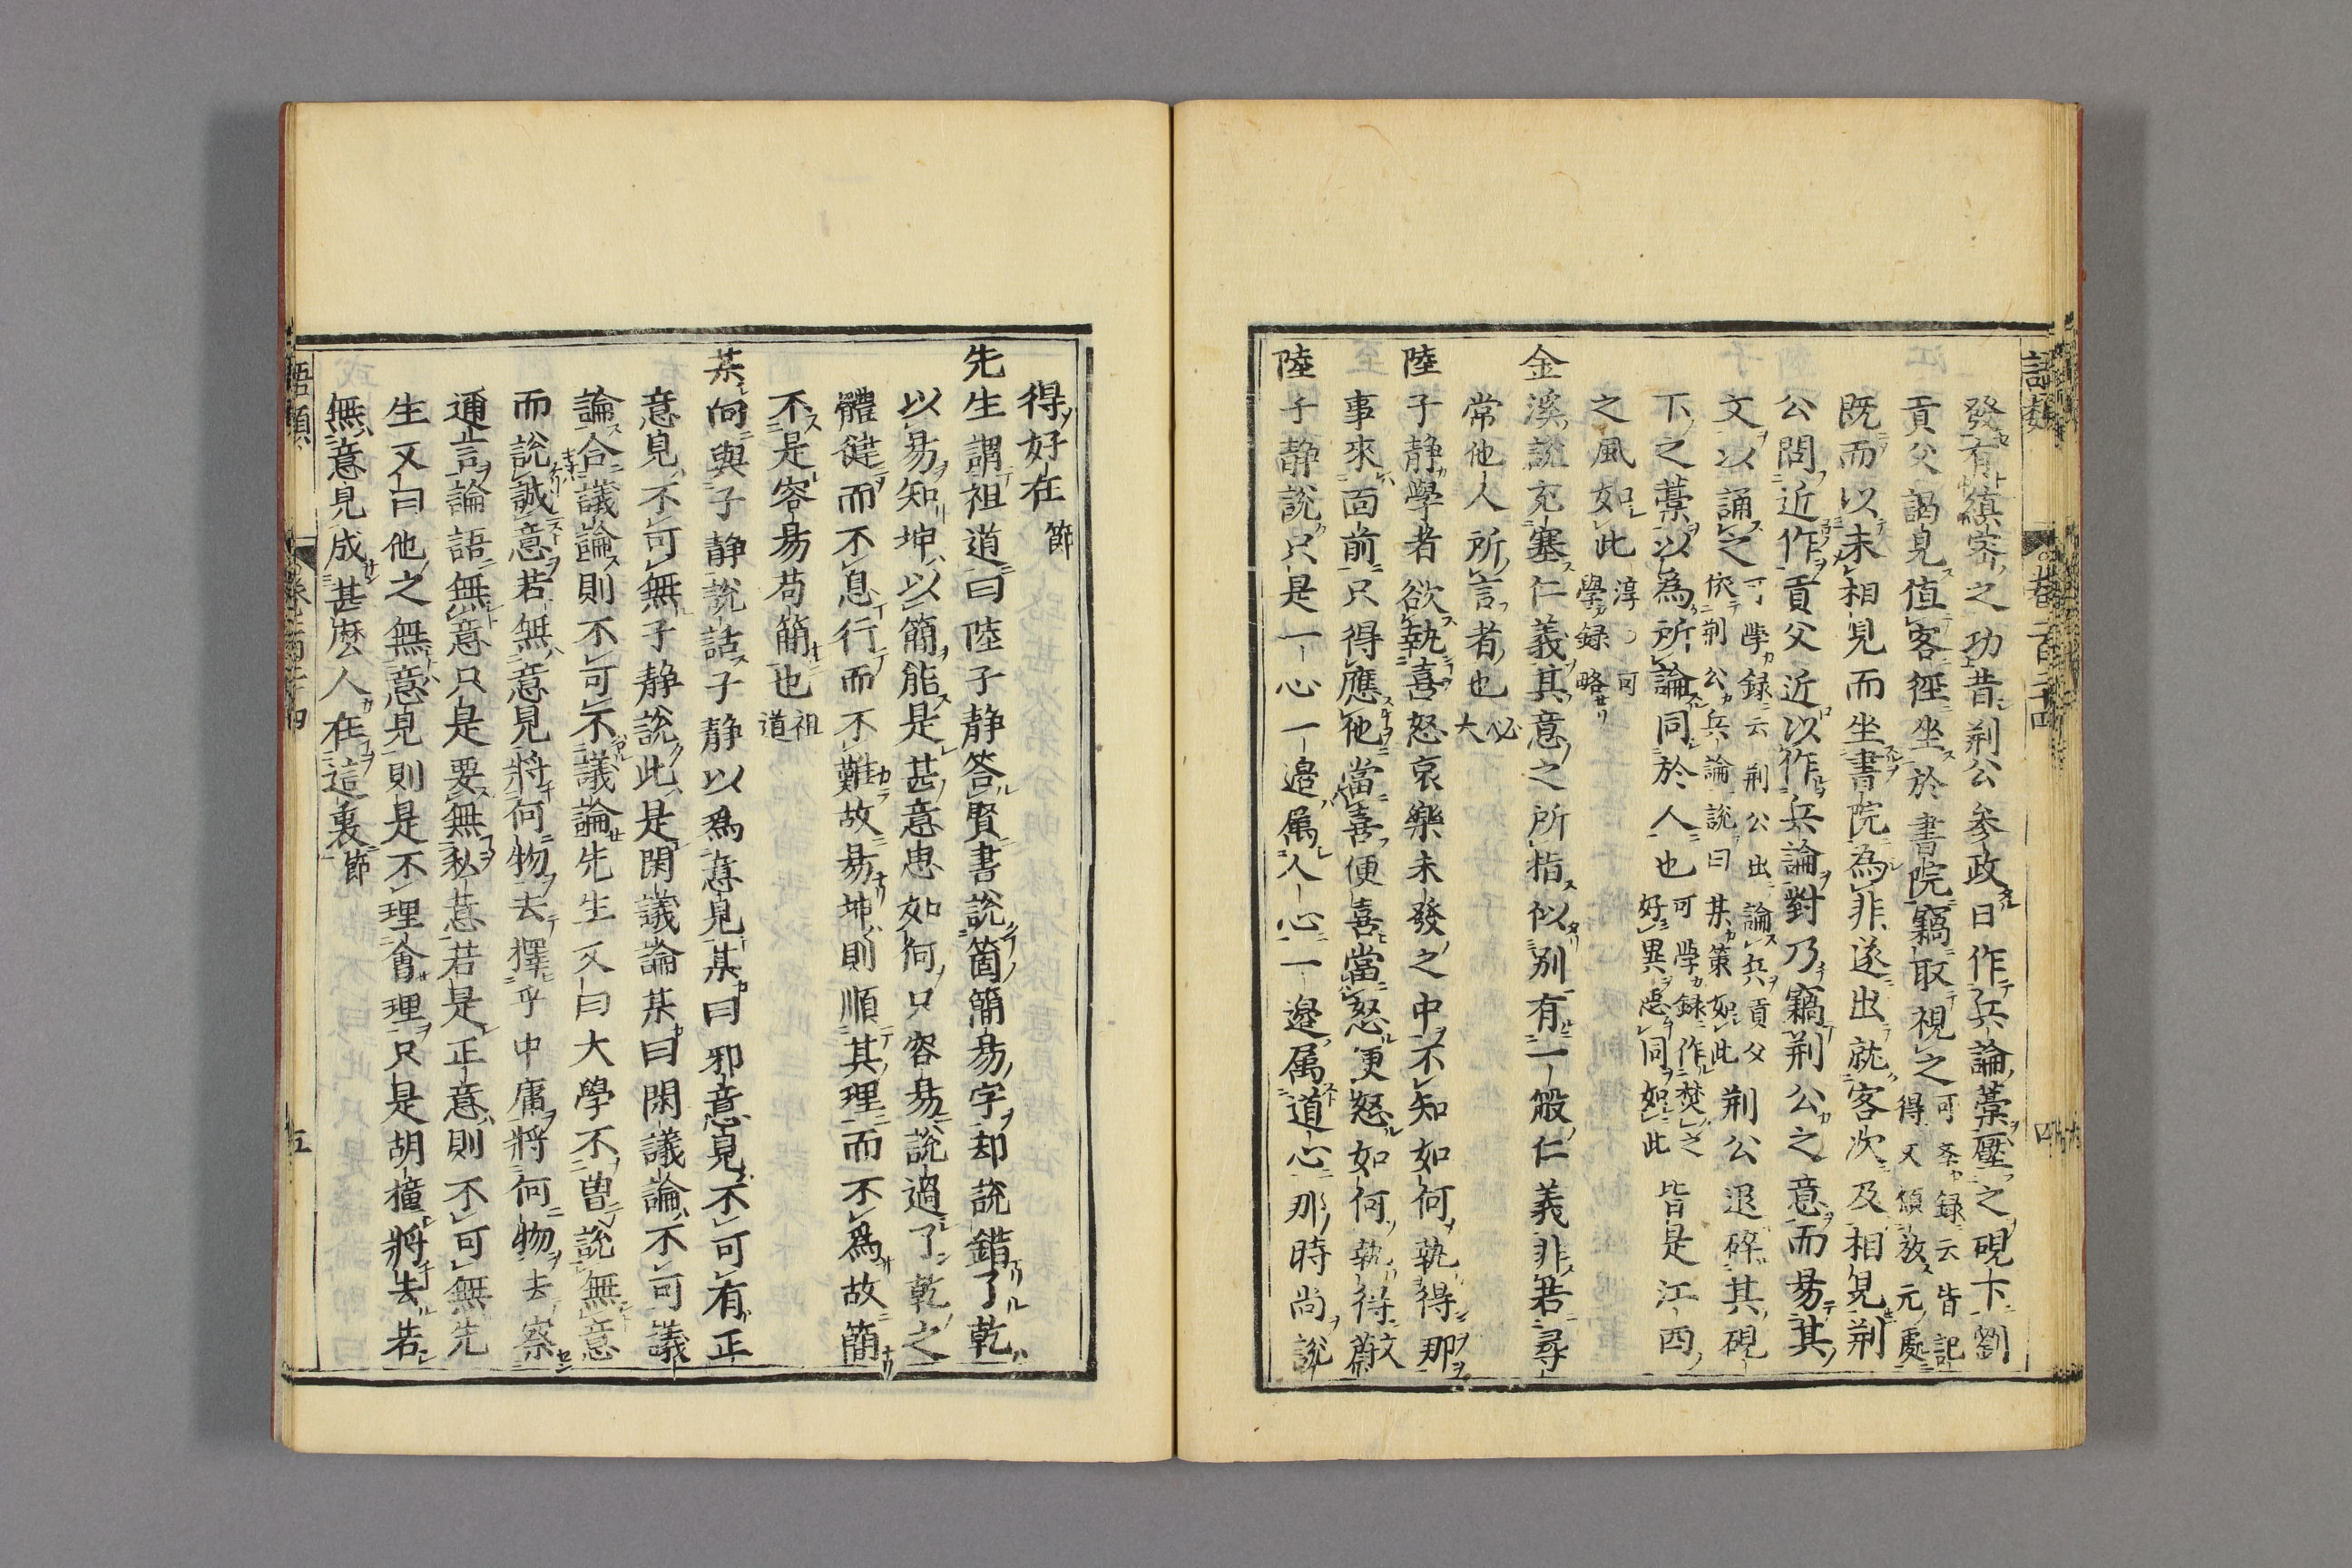 語類 卷百二十四 四
發有縝密之功昔荆公參政日作兵論藁壓之硯下劉
貢父謁見值客徑坐於書院竊取視之可學録云皆記得又頌敖元處
既而以未相見而坐書院為非遂出就客次及相見荆
公問近作貢父近以作兵論對乃竊荆公之意而易其
文以誦之可學録云荆公出論兵貢父依荆公兵論說曰某策如此荆公退碎其硯
下之藁以為所論同於人也可學録作焚之好異惡同如此皆是江西
之風如此淳○可學録略
金溪說充塞仁義其意之所指似別有一般仁義非若尋
常他人所言者也必大
陸子静學者欲執喜怒哀樂未發之中不知如何執得那
事來面前只得應他當喜便喜當怒便怒如何執得文蔚
陸子静說只是一心一邉属人心一邉属道心那時尚說
得好在節
先生謂祖道曰陸子静答賢書說箇簡易字却說錯了乾
以易知坤以簡能是甚意思如何只容易說過了乾之
體健而不息行而不難故易坤則順其理而不為故簡
不是容易苟簡也祖道
某向與子静說話子静以為意見某曰邪意見不可有正
意見不可無子静說此是閑議論某曰閑議論不可議
論合議論則不可不議論先生又曰大學不曽說無意
而說誠意若無意見將何物去擇乎中庸將何物去察
通言論語無意只是要無私意若是正意則不可無先
生又曰他之無意見則是不理會理只是胡撞將去若
無意見成甚麽人在這裏節
語類 五